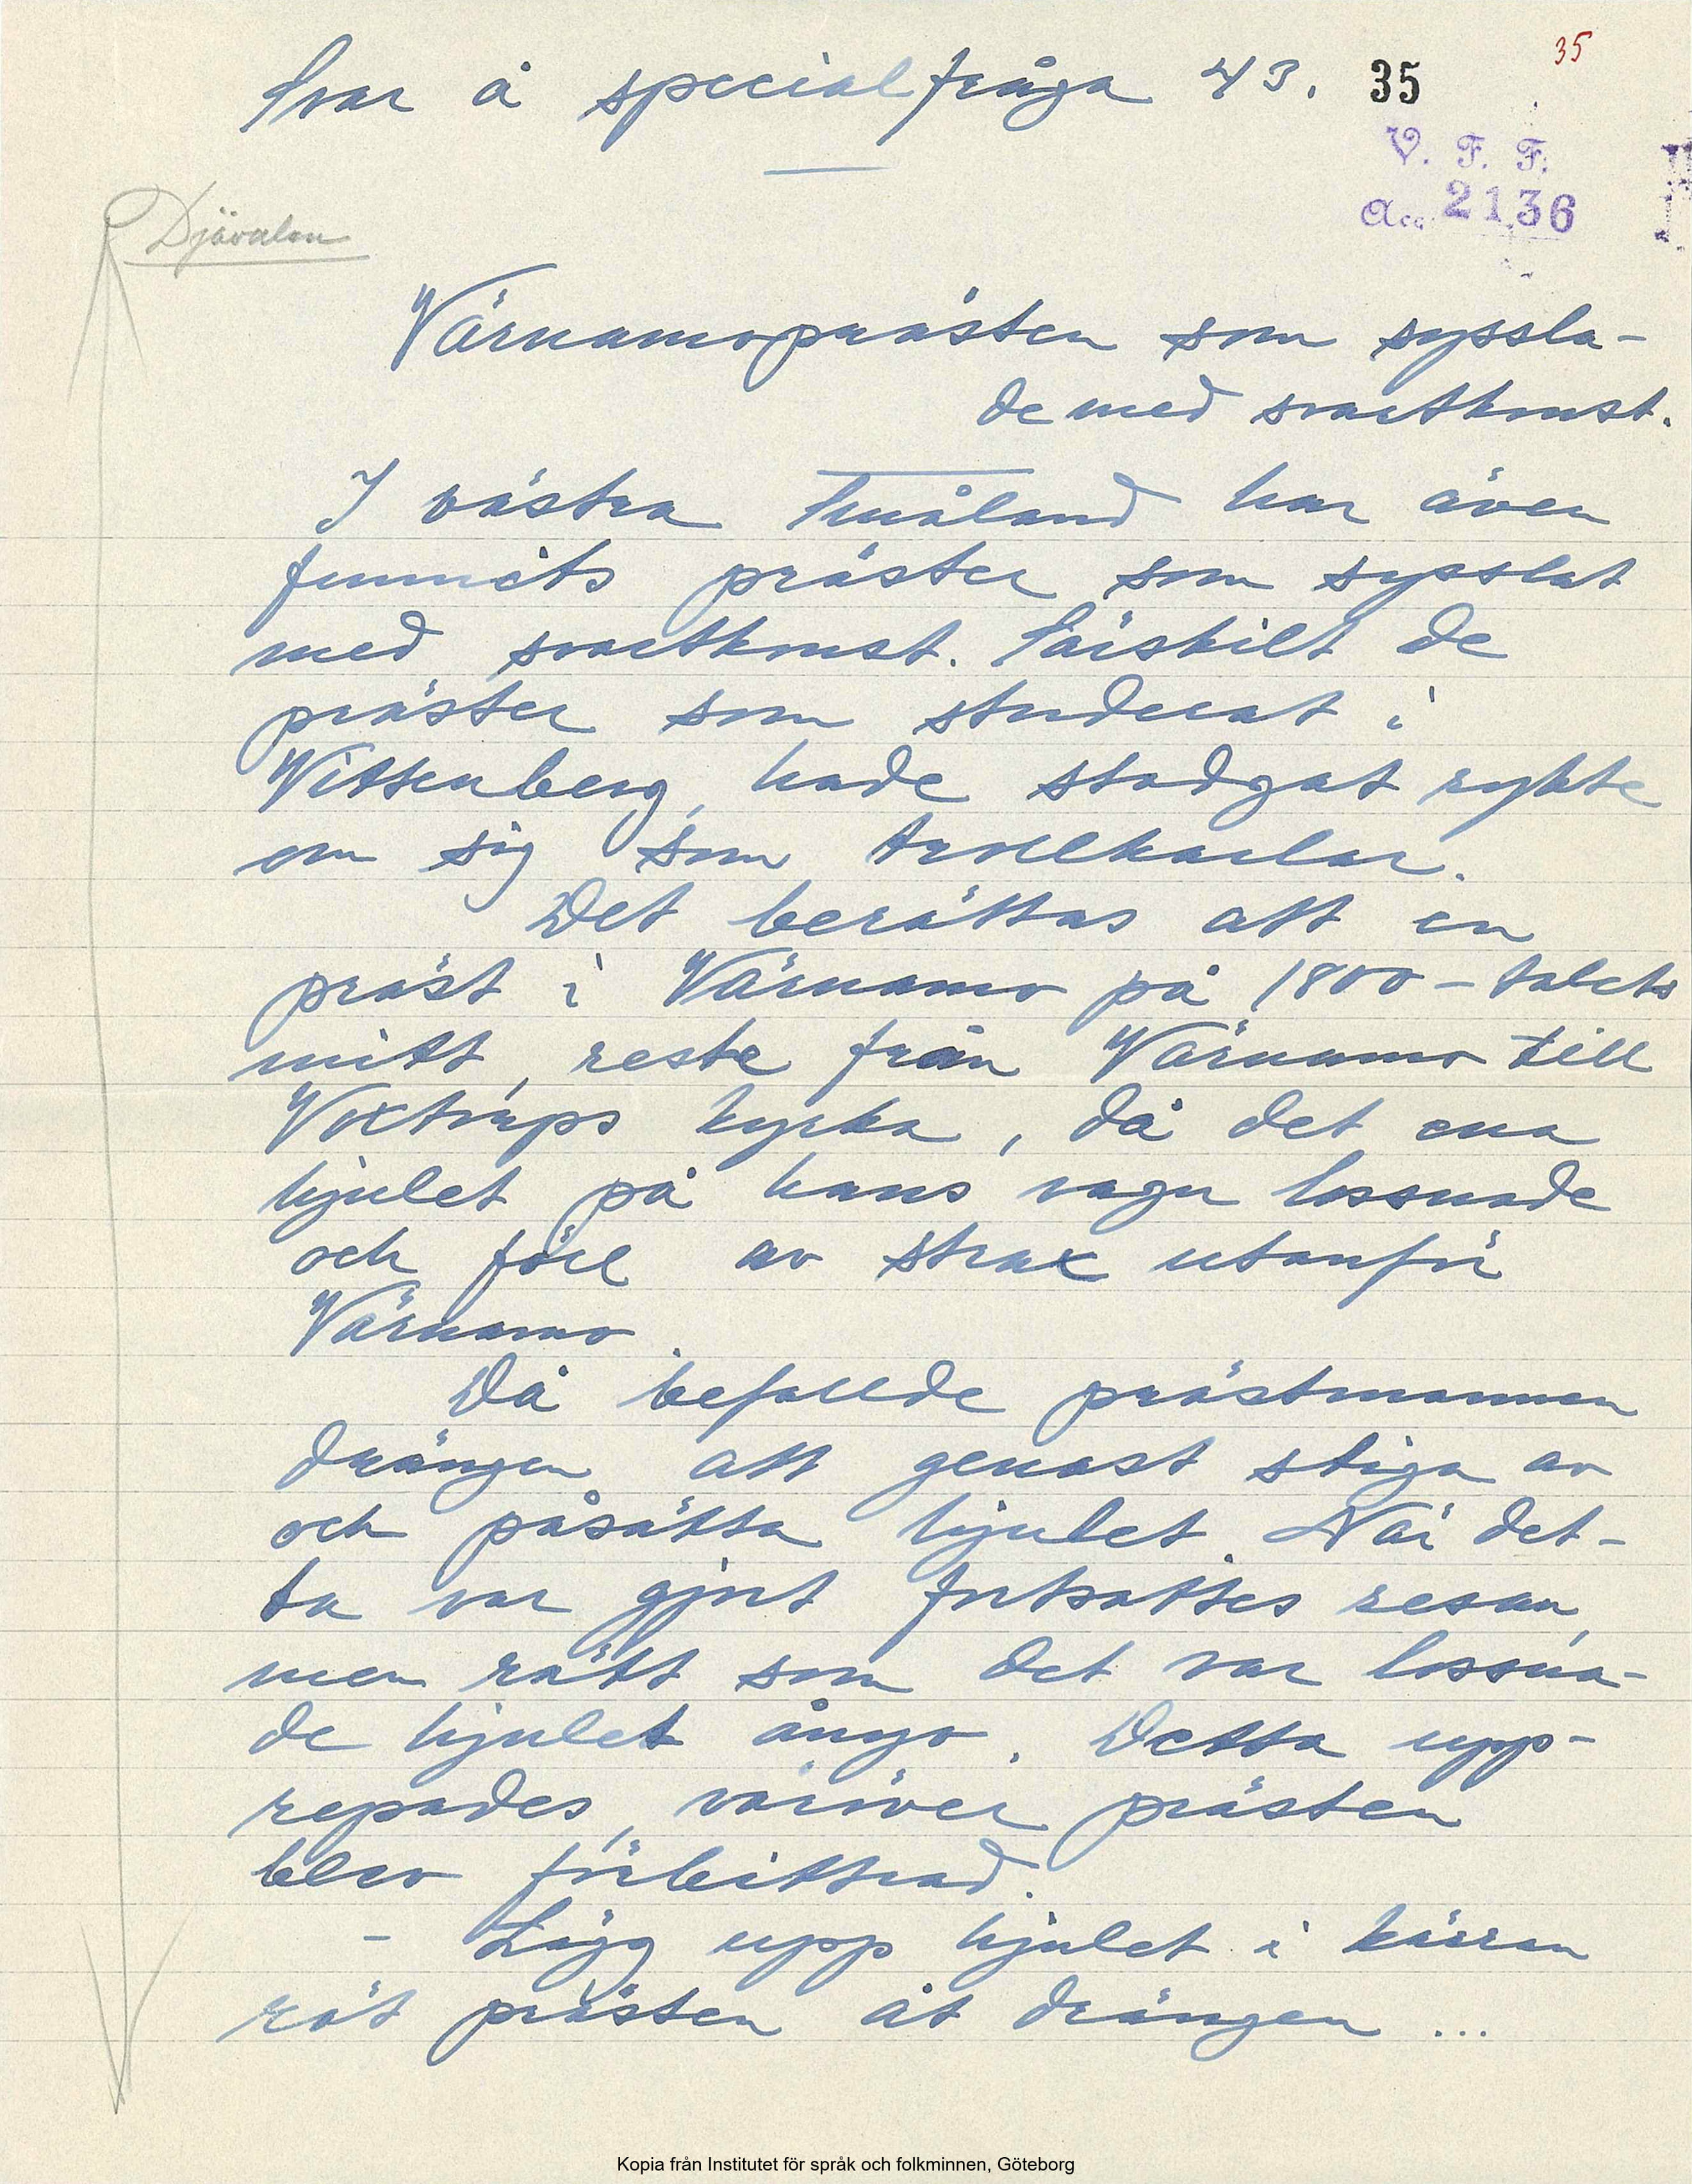 35
Svar å specialfråga 43. 35
V. F. F.
Acc. 2136
Djävulen
Värnamoprästen som syssla-
de med svartkonst.
I västra Småland har även
funnits präster som sysslat
med svartkonst. Särskilt de
präster som studerat i
Wittenberg, hade stadgat rykte
om sig som trollkarlar.
Det berättas att en
präst i Värnamo på 1800-talets
mitt, reste från Värnamo till
Voxtorps kyrka, då det ena
hjulet på hans vagn lossnade
och föll av strax utanför
Värnamo.
Då befallde prästmannen
drängen att genast stiga av
och påsätta hjulet. När det-
ta var gjort fortsattes resan,
men rätt som det var lossna-
de hjulet ånyo. Detta upp-
repades, varöver prästen
blev förbittrad.
- Lägg upp hjulet i kärran
röt prästen åt drängen ...
Kopia från Institutet för språk och folkminnen, Göteborg